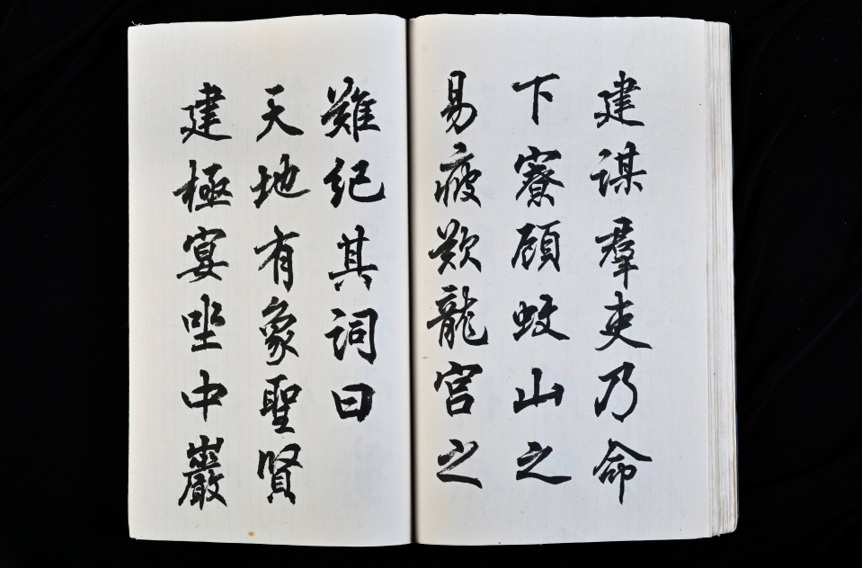 建謀羣吏乃命
下寮顧蚊山之
易疲歎龍宮之
難紀其詞曰
天地有象聖賢
建極宴坐中巖